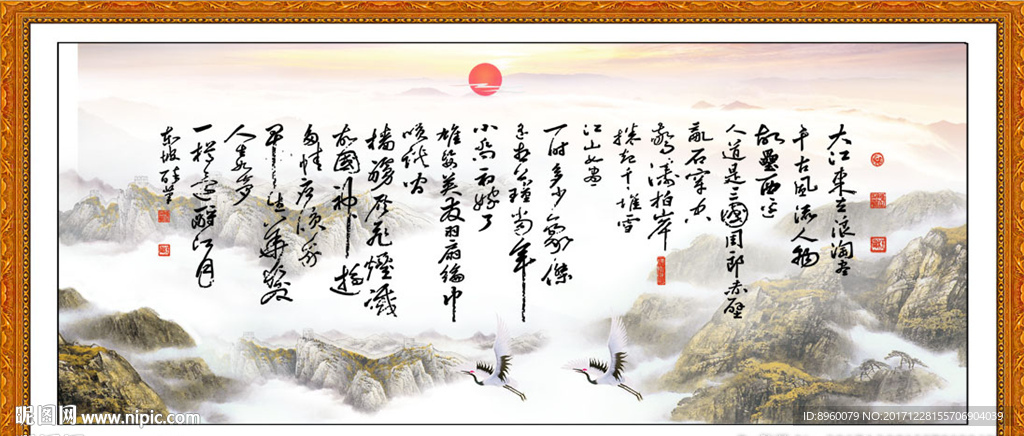 大江東去浪淘盡
千古風流人物
故壘西邊
人道是三國周郎赤壁
亂石穿空
驚濤拍岸
捲起千堆雪
江山如畫
一時多少豪傑
遙想公瑾當年
小喬初嫁了
雄姿英發羽扇綸巾
談笑間
檣艣灰飛煙滅
故國神遊
多情應
早生華髮
人生如夢
一樽還酹江月
東坡醉筆
昵图网 www.nipic.com
ID:8960079 NO:20171228155706904039